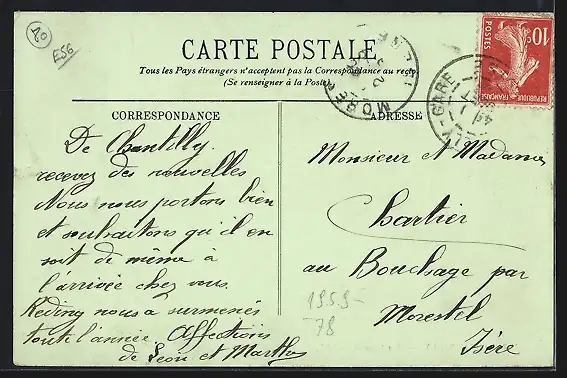 20
E56
CARTE POSTALE
Tous les Pays étrangers n'acceptent pas la Correspondance au recto
(Se renseigner à la Poste)
CORRESPONDANCE
De Chantilly.
recevez des nouvelles
Nous nous portons bien
et souhaitons qu'il en
soit de même à
l'arrivée chez vous.
nous a surmenés
toute l'année. Affections
de Léon et Marthe
ADRESSE
Monsieur et Madame
Chartier
au Bouchage par
Morestel
Isère
1959-
78
10c
POSTES
REPUBLIQUE FRANÇAISE
LLY-GARE
MOREST